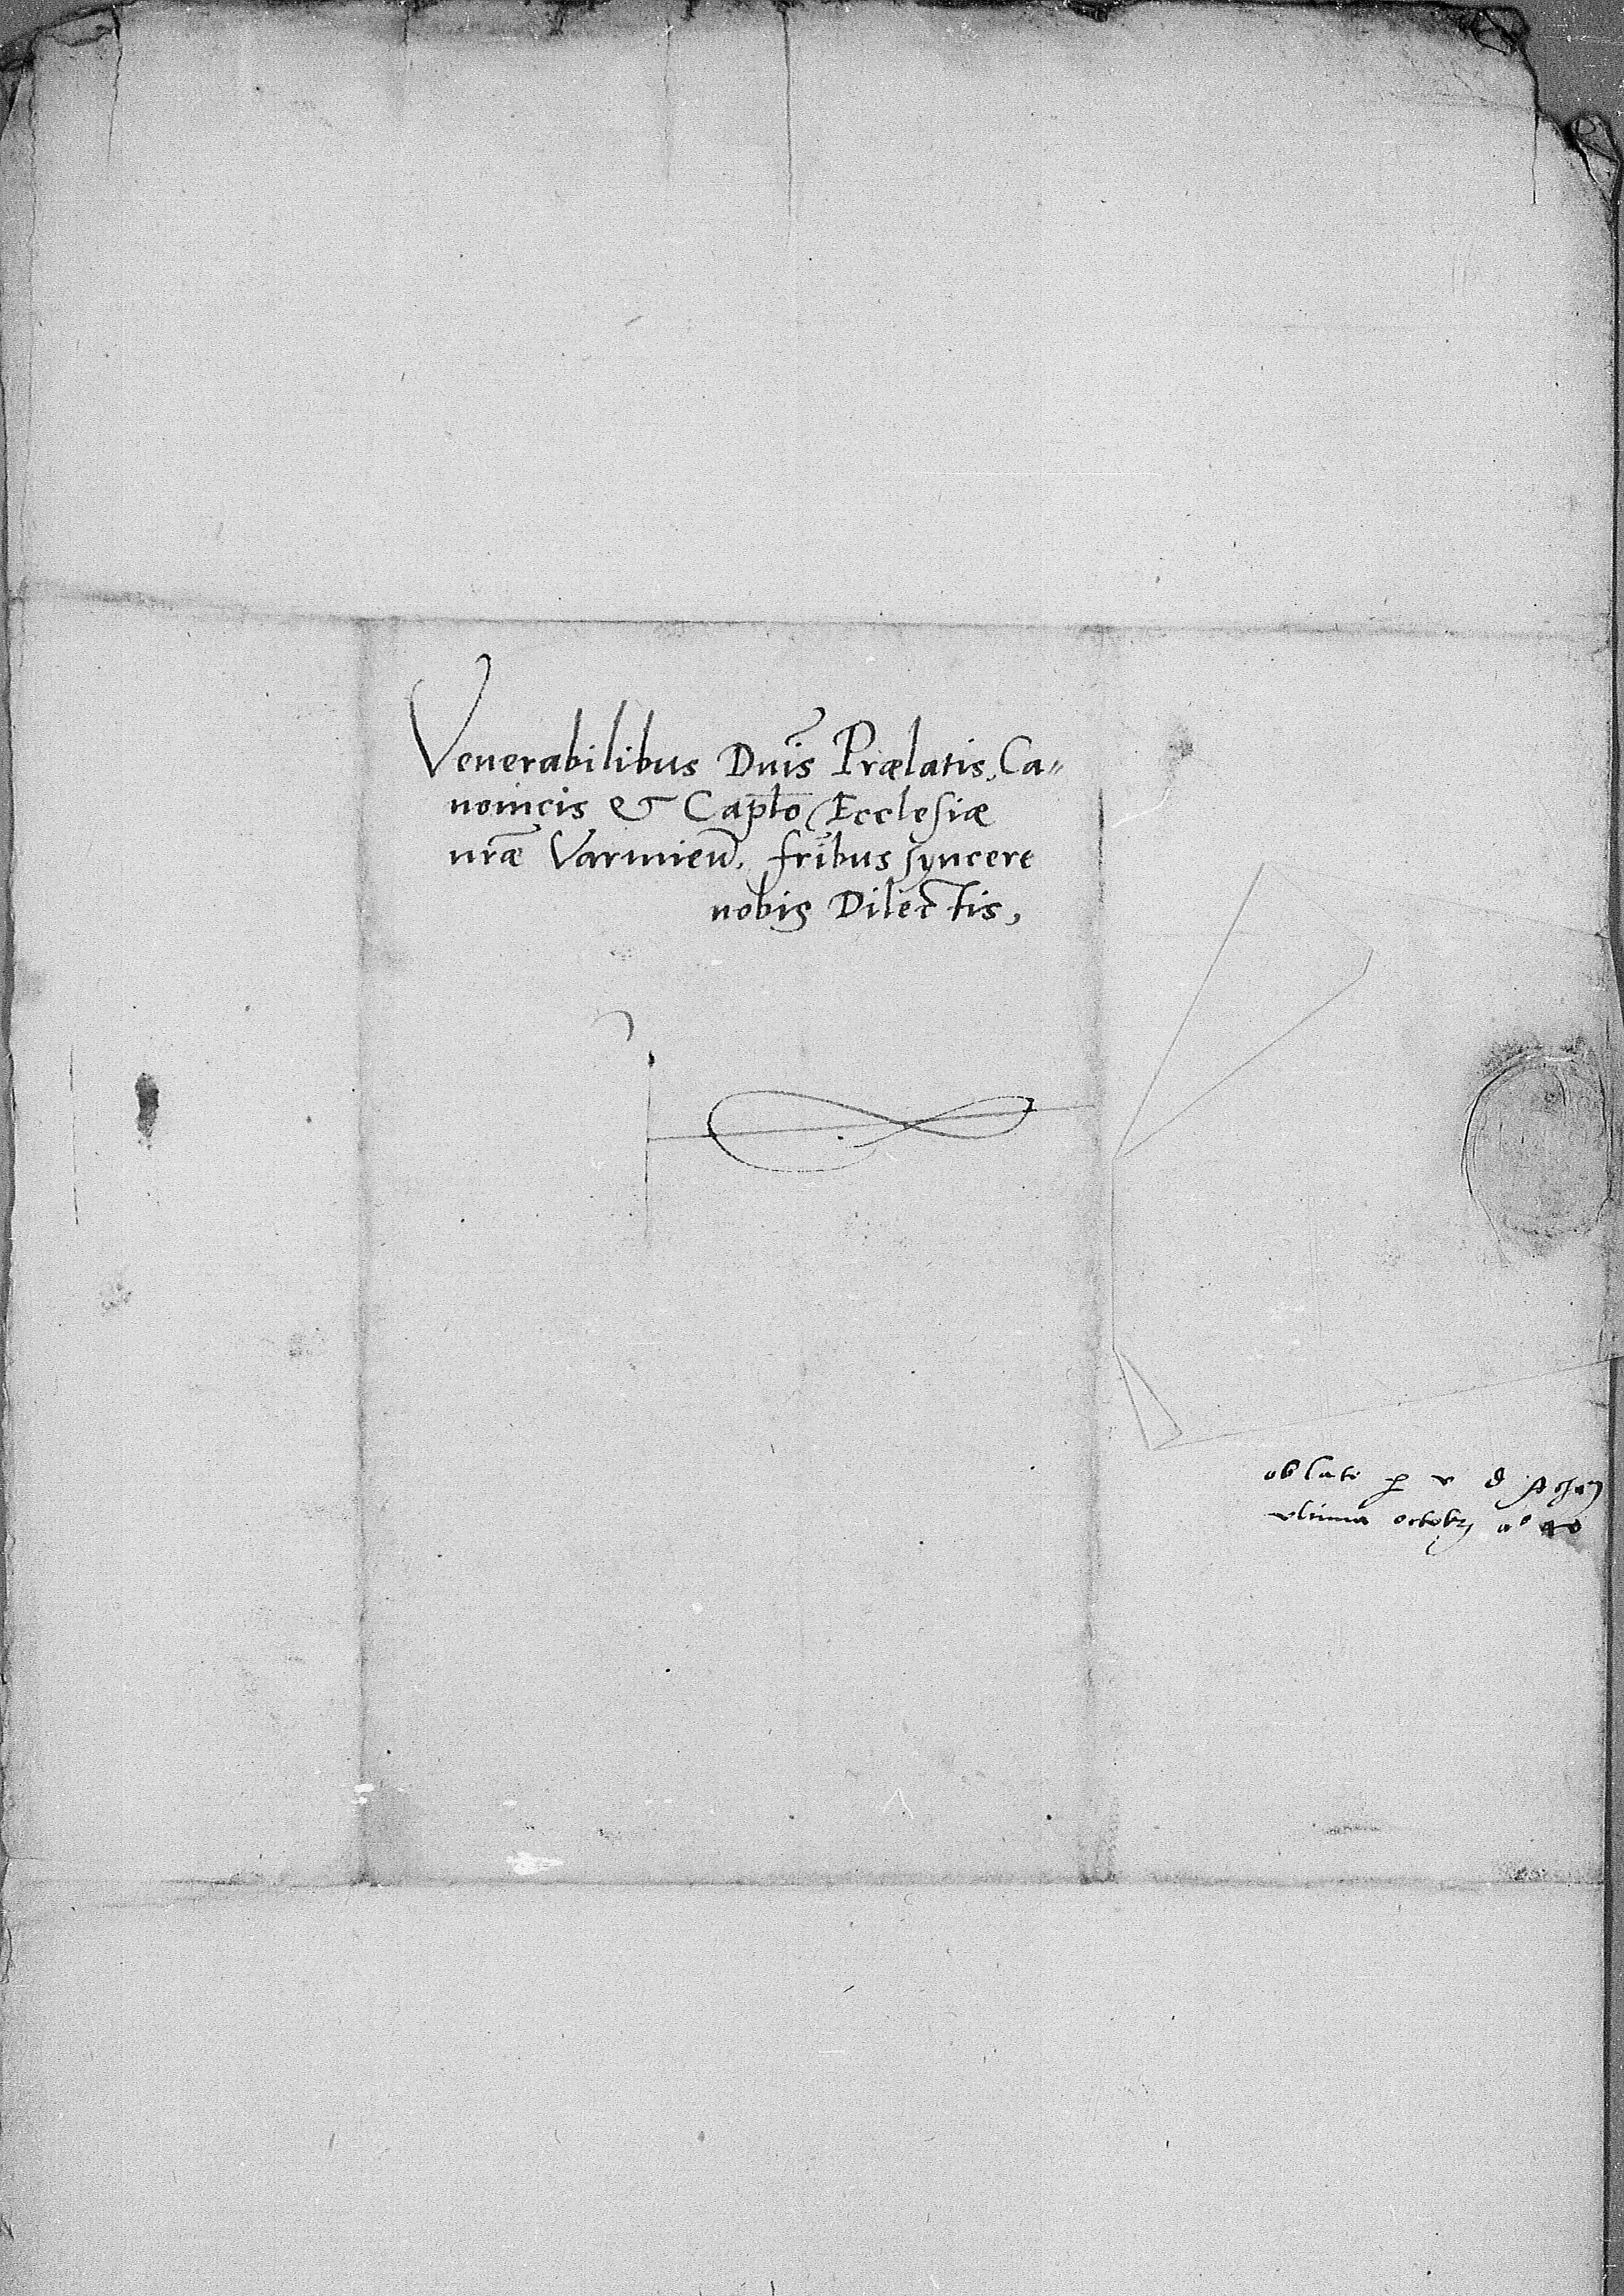 Venerabilibus Dnis̃ Prælatis, Ca〃
nonicis & Capl̃o Ecclesiæ
nr̃æ Varmieñ. fr̃ibus syncere
nobis Dilectis,
oblate p v d
vltima octobr aº 40